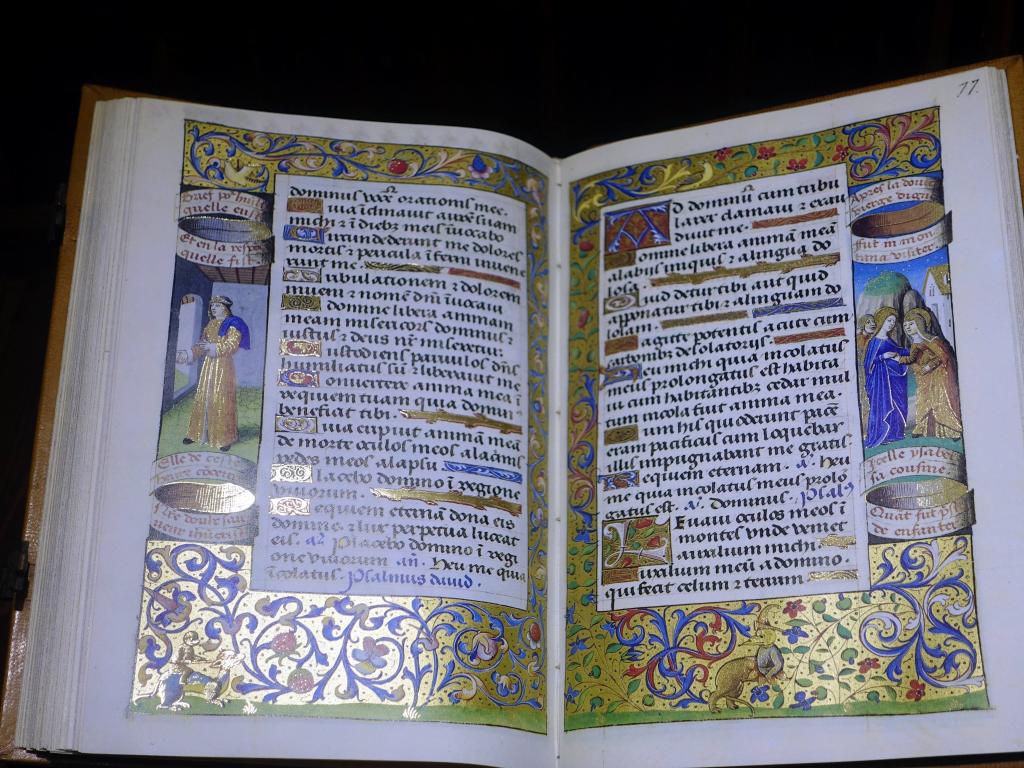 domini vocē orationis mee.
uia īclinauit aurē suam
michi ⁊ ī diebȝ meis īuocabo
ircundederunt me dolores
mortis ⁊ pericula īferni inuene
runt me.
ribulationem ⁊ dolorem
inueni ⁊ nomē dnī īuocaui
domine libera animam
meam misericors dominus
iustus ⁊ deus nr̄ miseretur.
ustodiens paruulos dns̄
humiliatus sū ⁊ liberauit me
onuertere anima mea in
requiem tuam quia domin⁹
benefiat tibi.
uia eripuit animā meā
de morte oculos meos a lacrīis
pedes meos a lapsu
lacebo domino ī regione
viuorum.
equiem eternā dona eis
domine. ⁊ lux perpetua luceat
eis. aā. Placebo domino ī regi
one viuorum añ. Heu me quia
īcolatus. Psalmus dauid.
Elle de
77.
A d dominū cum tribu
larer clamaui ⁊ exau
diuit me.
omine libera animā meā
a labijs iniquis ⁊ a lingua do
losa.
uid detur tibi aut quid
apponatur tibi ⁊ a linguam do
losam.
agitte potentis acute cum
carbonibȝ desolatorijs.
eu michi quia incolatus
meus prolongatus est habita
ui cum habitantibȝ cedar mul
tum incola fuit anima mea.
um his qui oderunt pacē
eram pacificus cum loquebar
illis impugnabant me gratis.
equiem eternam. a. heu
me quia incolatus meus prolō
gatus est. v. Dominus. Psal⁹
L Euaui oculos meos ī
montes vnde veniet
auxilium michi.
uxilium meū a domino.
qui fecit celum ⁊ terram
Apres la doulce
vierge digne
fut in mon
tana visiter
Celle ysabel
sa cousine.
Quāt fut pres
de enfanter